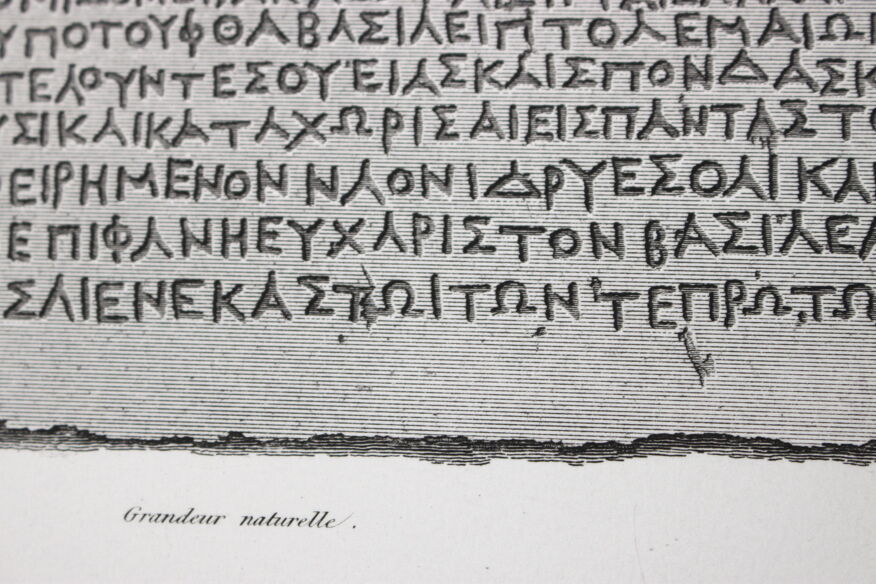 ΥΠΟΤΟΥΦΘΑΒΑΣΙΛΕΙΠΤΟΛΕΜΑΙΩΙ
ΤΕΛΟΥΝΤΕΣΟΥΕΙΑΣΚΑΙΣΠΟΝΔΑΣΚ
ΥΣΙΚΑΙΚΑΤΑΧΩΡΙΣΑΙΕΙΣΠΑΝΤΑΣΤΟ
ΕΙΡΗΜΕΝΟΝΝΑΟΝΙΔΡΥΕΣΟΑΙΚΑΙ
ΕΠΙΦΑΝΗΕΥΧΑΡΙΣΤΟΝΒΑΣΙΛΕΑ
ΣΑΙΕΝΕΚΑΣΤΩΙΤΩΝΤΕΠΡΩΤΩ
Grandeur naturelle.